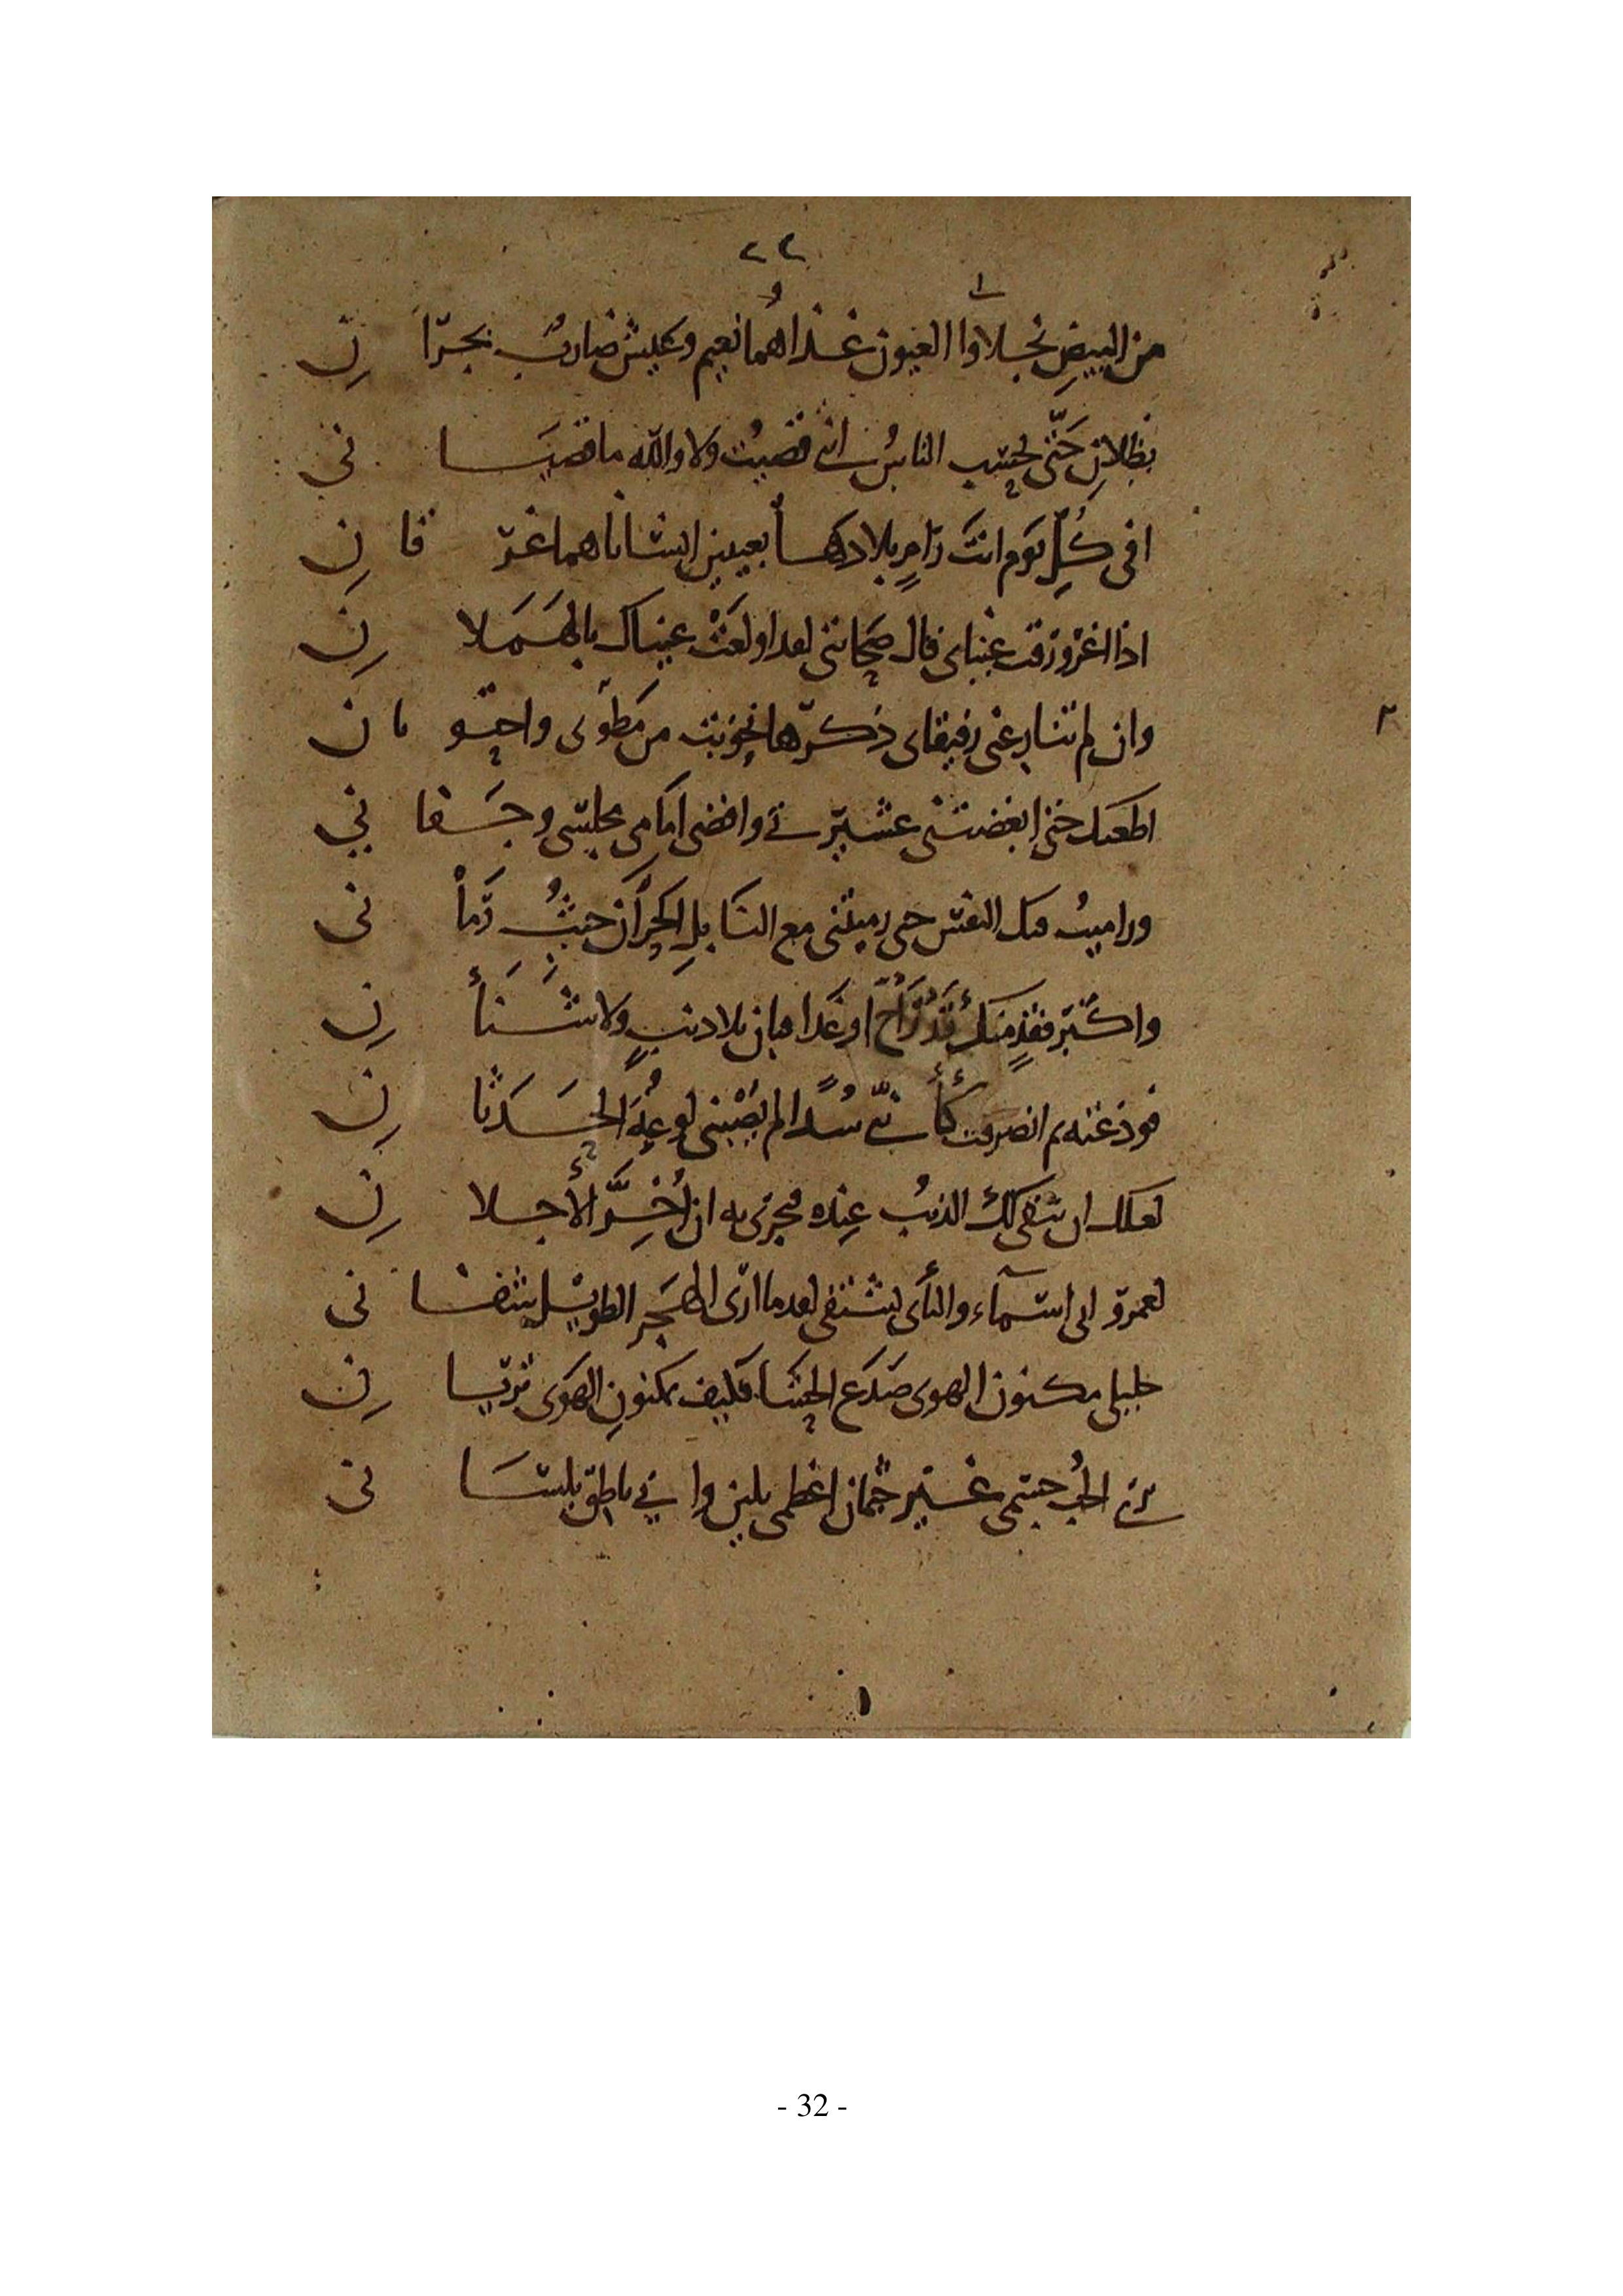 ٢٢
من البيضِ نجلاوا العيون غذاهُما نعيم وعيش ضاربٌ بجرّا نِ
بظلان حَتّى يحسب الناسُ انى قضيتُ ولا والله ما قضيَا نى
افى كُلِّ يَوم انتَ رَامٍ بلادها بعينين انسانا هما غرّ قا نِ
اذا اغرورقت عيناى قال صَحابتى لعد اولعَتْ عيناك بالهَمَلا نِ
وان لم تنازعنى رفيقاى ذكرها نحو بت من مَطوى واجتو ما ن
اطعتك حتى ابغضتنى عشيرتى واقصى امَامى مجلسى وجَفا نى
وراميتُ فيك النفس حتى رميتنى مع النَابلِ الحَرّان حيثُ رَما نى
واكبر فقدٍ منك قد رَاحَ او غدا فبان بلا ذنبٍ ولا شَنَأ نِ
فودعته ثم انصرفت كأنّى سُدًا لم يصبنى لوعةُ الحَدَثا نِ
لعلك ان يبقى لك الذنبُ عنده فيجزى به ان أُخِّرَ الأجلا نِ
لعمرو ابى اسمآء والنأى يشتفى لعدما ارَى الهَجر الطويل شفا نى
خليلى مكنون الهوى صَدَع الحشَا فكيف بمكنونِ الهَوى تريا نِ
برى الحُب جسمى غير جثمان اعظمى بلين وانى ناطق بلسَا نى
- 32 -